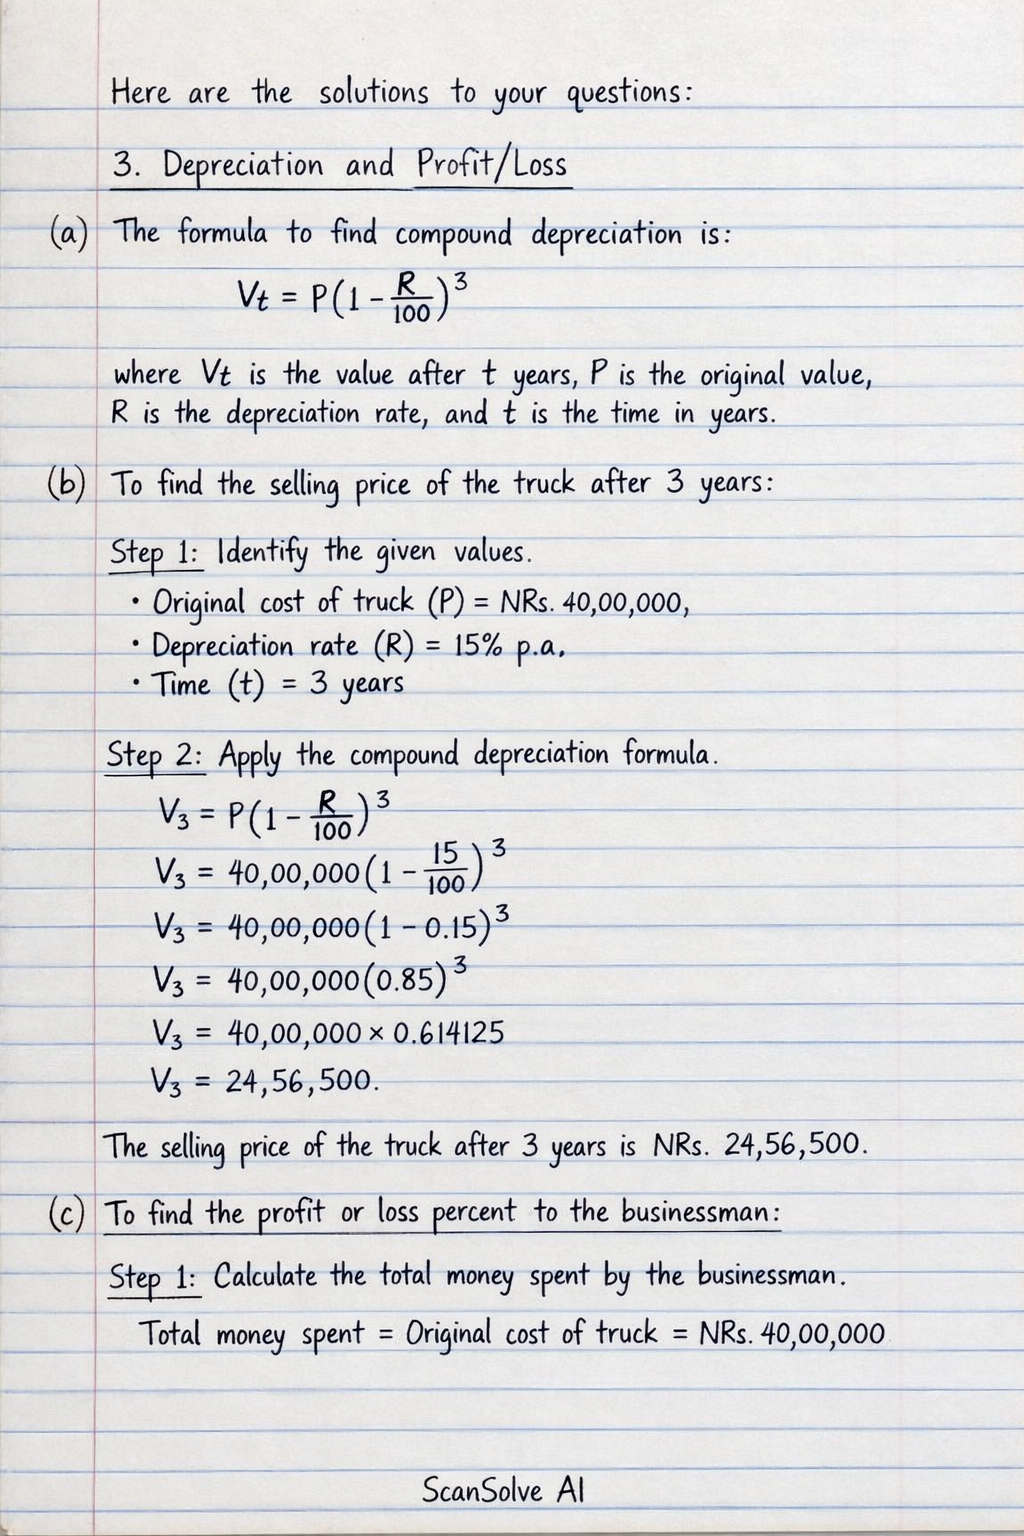 Here are the solutions to your questions:
3. Depreciation and Profit/Loss
(a) The formula to find compound depreciation is:
Vt = P(1 - R/100)³
where Vt is the value after t years, P is the original value,
R is the depreciation rate, and t is the time in years.
(b) To find the selling price of the truck after 3 years:
Step 1: Identify the given values.
• Original cost of truck (P) = NRs. 40,00,000,
• Depreciation rate (R) = 15% p.a.
• Time (t) = 3 years
Step 2: Apply the compound depreciation formula.
V₃ = P(1 - R/100)³
V₃ = 40,00,000(1 - 15/100)³
V₃ = 40,00,000(1 - 0.15)³
V₃ = 40,00,000(0.85)³
V₃ = 40,00,000 × 0.614125
V₃ = 24,56,500.
The selling price of the truck after 3 years is NRs. 24,56,500.
(c) To find the profit or loss percent to the businessman:
Step 1: Calculate the total money spent by the businessman.
Total money spent = Original cost of truck = NRs. 40,00,000
ScanSolve AI